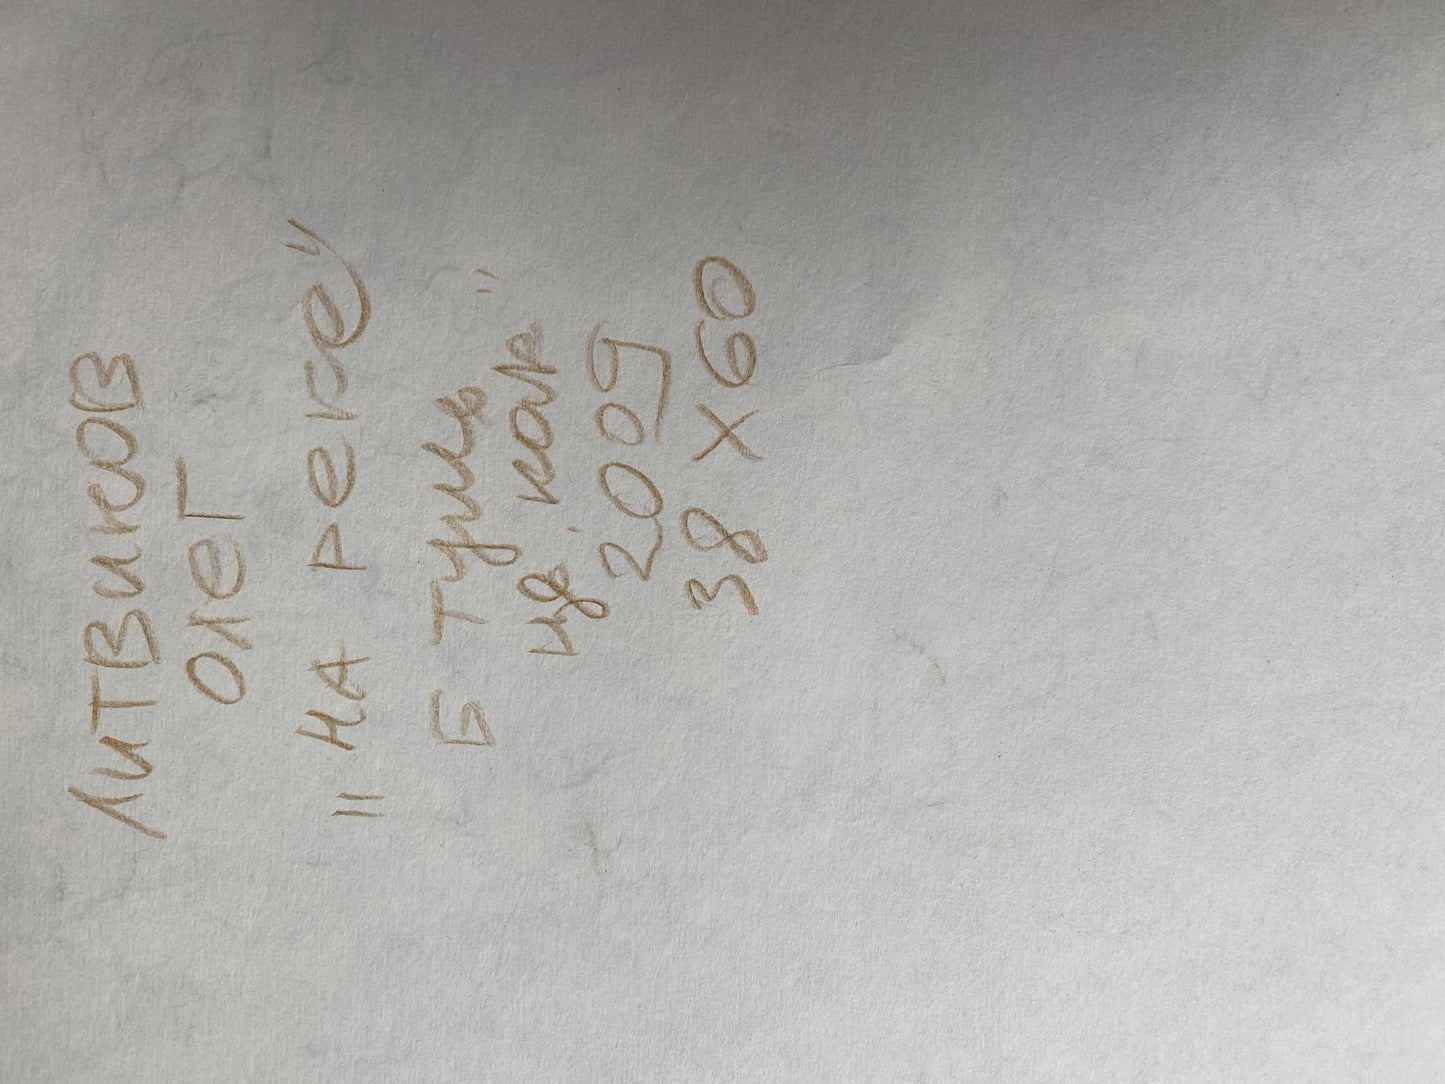 ЛИТВИНОВ
ОЛЕГ
"НА РЕКЕ"
Б Тушь
цв. кар. "
2009
38 X 60